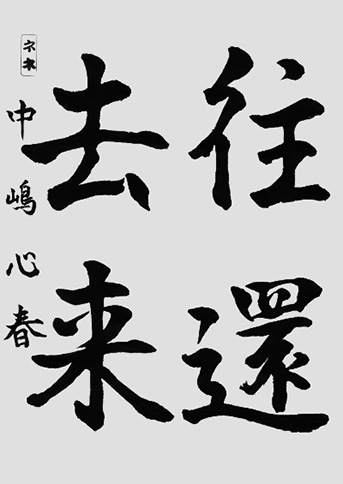 往還
去来
ネネ
中嶋心春